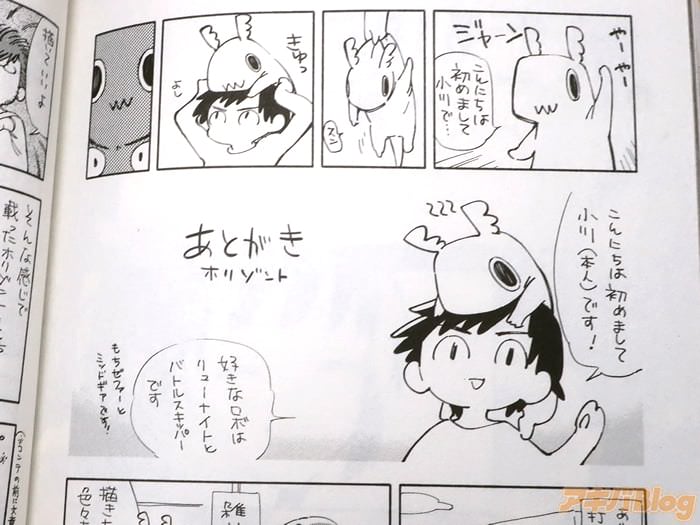 やーやー
ジャーン
こんにちは
初めまして
小川で…
スン
きゅっ
よし
あとがき
ホリゾント
こんにちは初めまして
小川(本人)です!
zzz
好きなロボは
リューナイトと
バトルスキッパー
です
もちゼファーと
ミッドギアです!
描いていいよ
そんな感じで
載ったホリゾント
描き
色々
アキバBlog